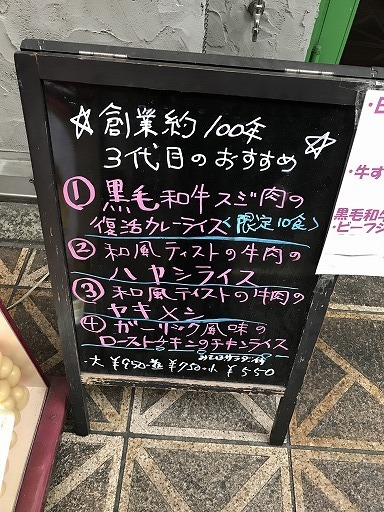 ☆創業約100年☆
3代目のおすすめ
①黒毛和牛スジ肉の
復活カレーライス〈限定10食〉
②和風テイストの牛肉の
ハヤシライス
③和風テイストの牛肉の
ヤキメン
④ガーリック風味の
ローストチキンのチキンライス
大¥950-並¥750-小¥550
・牛す
黒毛和牛
・ビーフシ